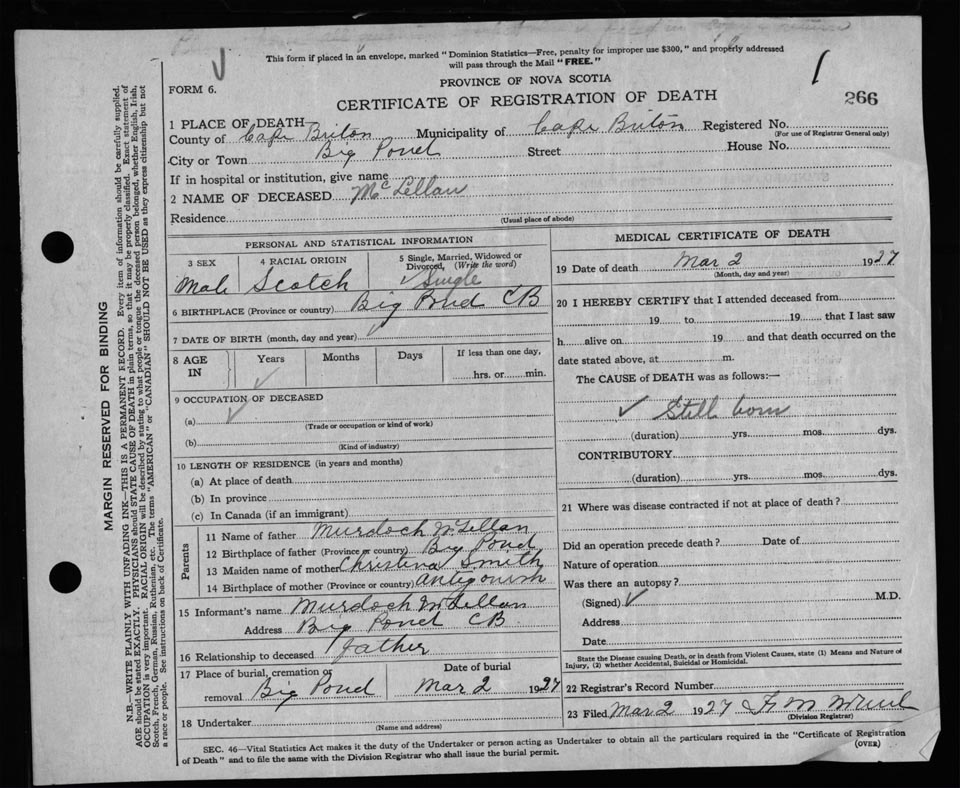 This form if placed in an envelope, marked "Dominion Statistics—Free, penalty for improper use $300," and properly addressed
will pass through the Mail "FREE."
FORM 6.
PROVINCE OF NOVA SCOTIA
CERTIFICATE OF REGISTRATION OF DEATH
266
1 PLACE OF DEATH
County of Cape Briton Municipality of Cape Briton Registered No.
(For use of Registrar General only)
City or Town Big Pond Street House No.
If in hospital or institution, give name
2 NAME OF DECEASED McLellan
Residence
(Usual place of abode)
PERSONAL AND STATISTICAL INFORMATION
3 SEX 4 RACIAL ORIGIN 5 Single, Married, Widowed or Divorced, (Write the word)
Male Scotch Single
6 BIRTHPLACE (Province or country) Big Pond CB
7 DATE OF BIRTH (month, day and year)
8 AGE IN Years Months Days If less than one day, hrs. or min.
9 OCCUPATION OF DECEASED
(a)
(Trade or occupation or kind of work)
(b)
(Kind of industry)
10 LENGTH OF RESIDENCE (in years and months)
(a) At place of death
(b) In province
(c) In Canada (if an immigrant)
Parents
11 Name of father Murdoch McLellan
12 Birthplace of father (Province or country) Big Pond
13 Maiden name of mother Christina Smith
14 Birthplace of mother (Province or country) Antigonish
15 Informant's name Murdoch McLellan
Address Big Pond CB
16 Relationship to deceased father
17 Place of burial, cremation or removal Big Pond Date of burial Mar 2 1927
18 Undertaker
(Name and address)
MEDICAL CERTIFICATE OF DEATH
19 Date of death Mar 2 1927
(Month, day and year)
20 I HEREBY CERTIFY that I attended deceased from
19 to 19 that I last saw
h alive on 19 and that death occurred on the
date stated above, at m.
The CAUSE of DEATH was as follows:—
Still born
(duration) yrs. mos. dys.
CONTRIBUTORY
(duration) yrs. mos. dys.
21 Where was disease contracted if not at place of death?
Did an operation precede death? Date of
Nature of operation
Was there an autopsy?
(Signed) M.D.
Address
Date
State the Disease causing Death, or in death from Violent Causes, state (1) Means and Nature of
Injury, (2) whether Accidental, Suicidal or Homicidal.
22 Registrar's Record Number
23 Filed Mar 2 1927
(Division Registrar)
SEC. 46—Vital Statistics Act makes it the duty of the Undertaker or person acting as Undertaker to obtain all the particulars required in the "Certificate of Registration
of Death" and to file the same with the Division Registrar who shall issue the burial permit.
(OVER)
MARGIN RESERVED FOR BINDING
N.B.—WRITE PLAINLY WITH UNFADING INK—THIS IS A PERMANENT RECORD. Every item of information should be carefully supplied.
AGE should be stated EXACTLY. PHYSICIANS should STATE CAUSE OF DEATH in plain terms, so that it may be properly classified. Exact statement of
OCCUPATION is very important. RACIAL ORIGIN will be described by stating to what people or tongue the deceased person belonged, whether English, Irish,
Scotch, French, German, Russian, Ruthenian, etc. The terms "AMERICAN" or "CANADIAN" SHOULD NOT BE USED as they express citizenship but not
a race or people. See instructions on back of Certificate.